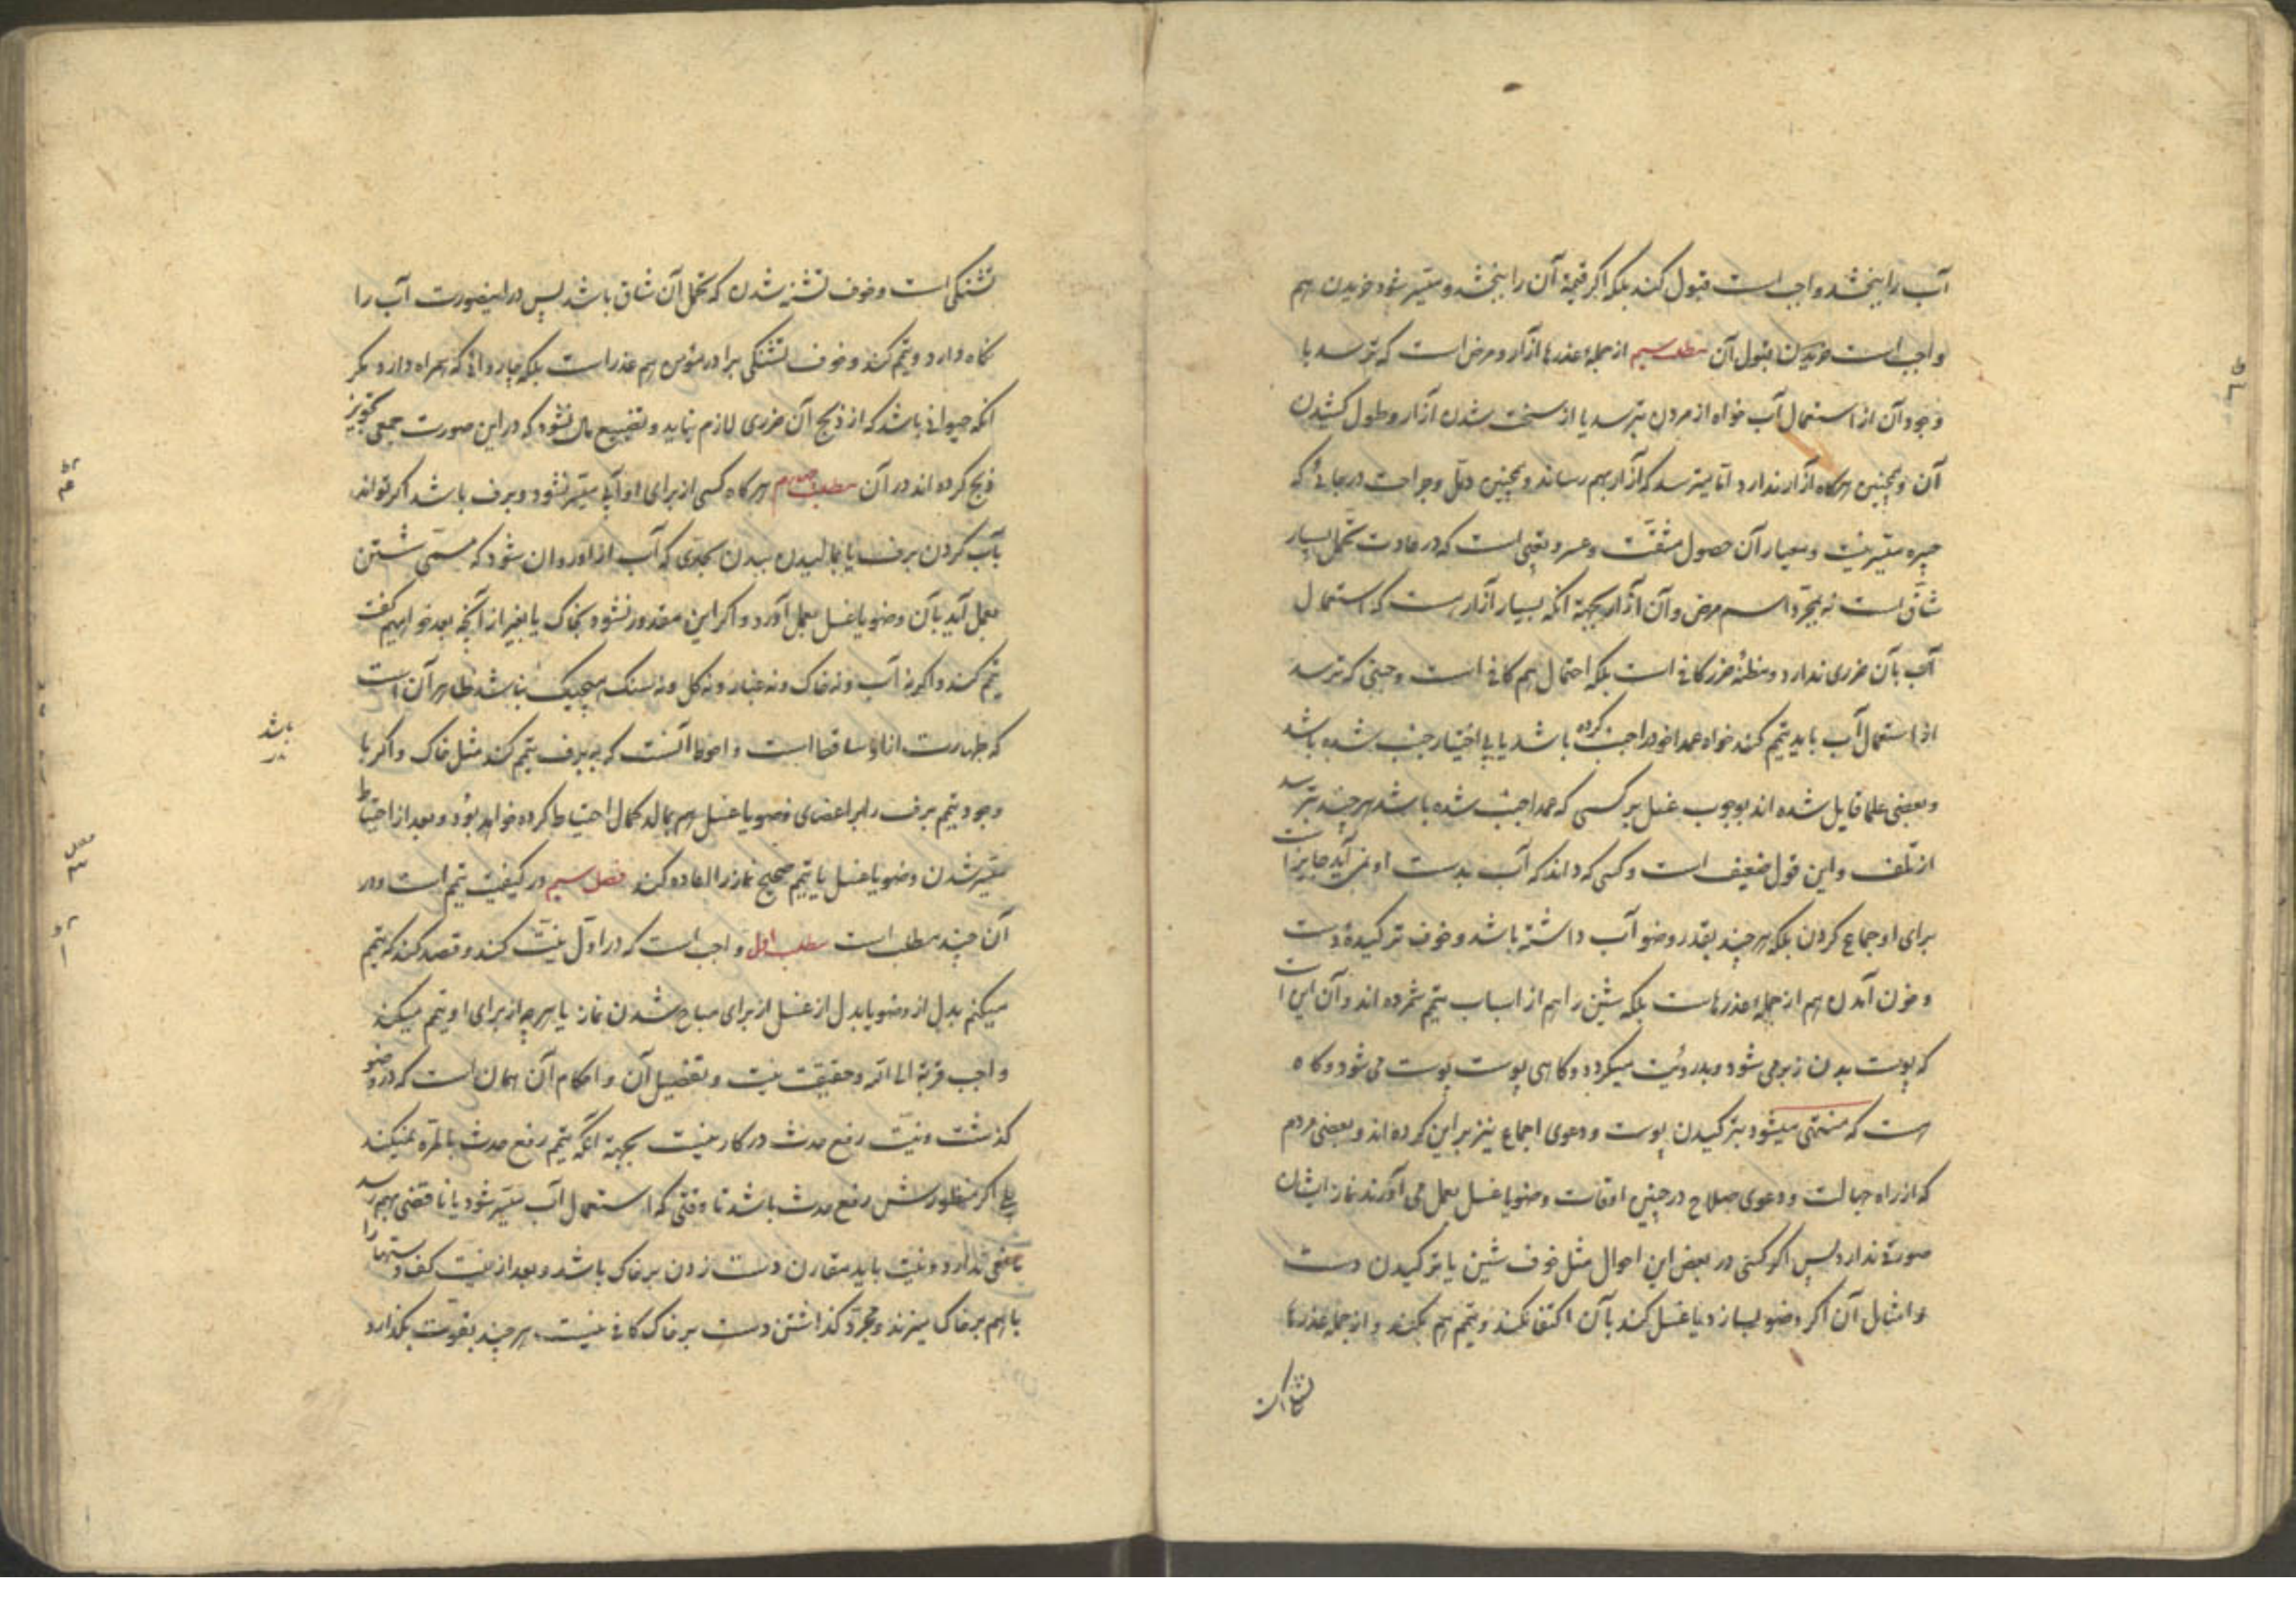 آب را ببخشد واجب است قبول کند بلکه اگر قیمة آن را ببخشد و میسر شود خریدن هم
واجب است خریدن قبول آن مطلب سیم از جملهٔ عذرها آزار و مرض است که ترسد با
وجود آن از استعمال آب خواه از مردن بترسد یا از سخت شدن آزار و طول کشیدن
آن و همچنین هرگاه آزار ندارد اما میترسد که آزار بهم رساند و همچنین دمّل و جراحت در جائی که
جبیره میسر نیست و معیار آن حصول مشقّت و عسر و تعبی است که در عادت تحمل بسیار
شاقّ است نه بمجرّد اسم مرض و آن آزار بجهة آنکه بسیار آزار هست که استعمال
آب بآن ضرری ندارد و مظنّهٔ ضرر کافی است بلکه احتمال هم کافی است و جنبی که ترسد
از استعمال آب باید تیمم کند خواه عمدا خود را جنب کرده باشد یا بی اختیار جنب شده باشد
و بعضی علما قایل شده اند بوجوب غسل بر کسی که عمدا جنب شده باشد هر چند بترسد
از تلف و این قول ضعیف است و کسی که داند که آب بدست او نمی آید جایز است
برای او جماع کردن بلکه هر چند بقدر وضو آب داشته باشد و خوف ترکیدهٔ دست
و خون آمدن هم از جملهٔ عذرهاست بلکه شین را هم از اسباب تیمم شمرده اند و آن این است
که پوست بدن زبر می شود و بدروئیت میگردد و گاهی پوست پوست می شود و گاه
هست که منتهی میشود بترکیدن پوست و دعوی اجماع نیز بر این کرده اند و بعضی مردم
که از راه جهالت و دعوی صلاح در چنین اوقات وضو یا غسل بعمل می آورند نماز ایشان
صورة ندارد پس اگر کسی در بعض این احوال مثل خوف شین یا ترکیدن دست
و امثال آن اگر وضو بسازد یا غسل کند بآن اکتفا نکند و تیمم هم بکند و از جمله عذرها
تشنگی است و خوف تشنه شدن که تحمل آن شاق باشد پس در اینصورت آب را
نگاه دارد و تیمم کند و خوف تشنگی برادر مؤمن هم عذر است بلکه چاروائی که همراه دارد مگر
آنکه حیوانی باشد که از ذبح آن ضرری لازم نیاید و تضییع مال نشود که در این صورت جمعی تجویز
ذبح کرده اند در آن مطلب چهارم هرگاه کسی از برای او آبی میسّر نشود و برف باشد اگر تواند
بآب کردن برف یا بمالیدن ببدن بحدی که آب از او روان شود که مسمّی شستن
بعمل آید بآن وضو یا غسل بعمل آورد و اگر این مقدور نشود بخاک یا بغیر از آنچه بعد خواهیم گفت
تیمم کند و اگر نه آب و نه خاک و نه غبار و نه گل و نه سنگ هیچیک نباشد ظاهر آن است
که طهارت از او ساقط است و احوط آنست که به برف تیمم کند مثل خاک و اگر با
باشد
وجود تیمم برف را بر اعضای وضو یا غسل هم بمالد کمال احتیاط کرده خواهد بود و بعد از احتیاط
میسّر شدن وضو یا غسل یا تیمم صحیح نماز را اعاده کند فصل سیم در کیفیت تیمم است و در
آن چند مطلب است مطلب اول واجب است که در اوّل نیّت کند و قصد کند که تیمم
میکنم بدل از وضو یا بدل از غسل از برای مباح شدن نماز یا هر چه از برای او تیمم میکند
واجب قربة الی الله و حقیقت نیت و تفصیل آن و احکام آن همان است که در وضو
گذشت و نیّت رفع حدث در کار نیست بجهة آنکه تیمم رفع حدث بالمره نمیکند
بلی اگر منظورش رفع حدث باشد تا وقتی که استعمال آب میسّر شود یا ناقضی بهم رسد
ندارد و نیّت باید مقارن دست زدن بر خاک باشد و بعد از نیت کف دستها را
با هم بر خاک میزند و مجرّد گذاشتن دست بر خاک کافی نیست هر چند بقوّت بگذارد